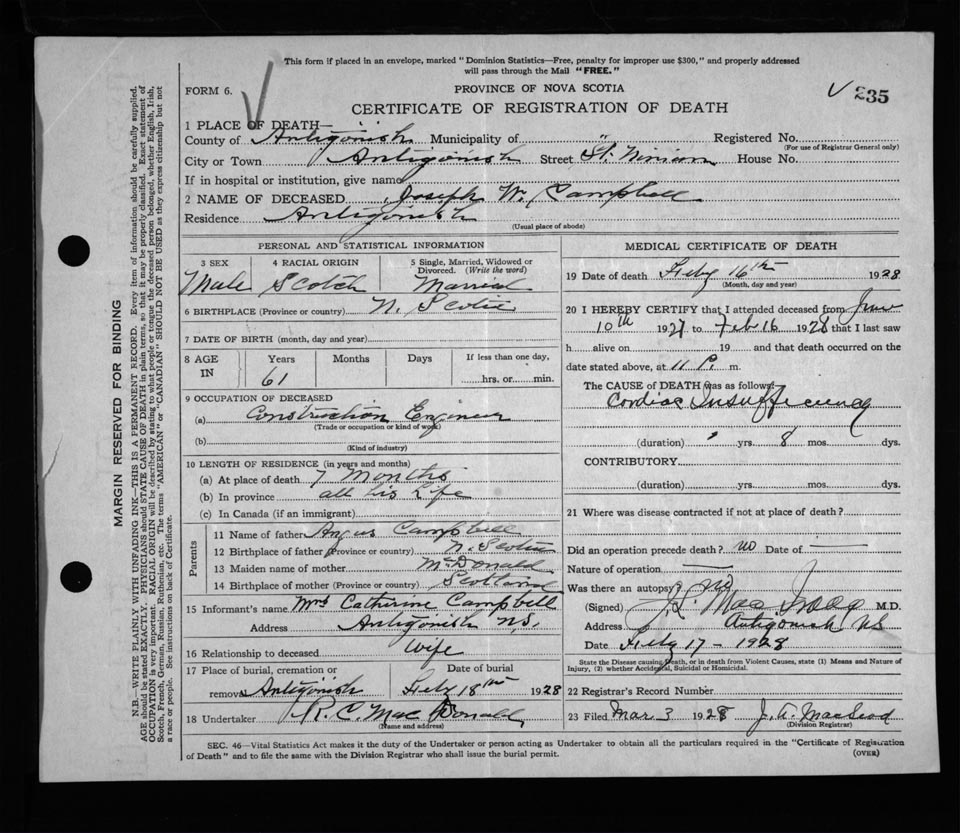 This form if placed in an envelope, marked "Dominion Statistics—Free, penalty for improper use $300," and properly addressed
will pass through the Mail "FREE."
FORM 6.
PROVINCE OF NOVA SCOTIA
V 235
CERTIFICATE OF REGISTRATION OF DEATH
1 PLACE OF DEATH—
County of Antigonish Municipality of " Registered No.
(For use of Registrar General only)
City or Town Antigonish Street St. Ninian House No.
If in hospital or institution, give name
2 NAME OF DECEASED Joseph W. Campbell
Residence Antigonish
(Usual place of abode)
PERSONAL AND STATISTICAL INFORMATION
3 SEX 4 RACIAL ORIGIN 5 Single, Married, Widowed or
Divorced. (Write the word)
Male Scotch Married
6 BIRTHPLACE (Province or country) N. Scotia
7 DATE OF BIRTH (month, day and year)
8 AGE IN Years Months Days If less than one day,
61 hrs. or min.
9 OCCUPATION OF DECEASED
(a) Construction Engineer
(Trade or occupation or kind of work)
(b)
(Kind of industry)
10 LENGTH OF RESIDENCE (in years and months)
(a) At place of death 7 Months
(b) In province all his Life
(c) In Canada (if an immigrant)
Parents
11 Name of father Angus Campbell
12 Birthplace of father (Province or country) N. Scotia
13 Maiden name of mother McDonald
14 Birthplace of mother (Province or country) Scotland
15 Informant's name Mrs Catherine Campbell
Address Antigonish N.S.
16 Relationship to deceased Wife
17 Place of burial, cremation or Date of burial
removal Antigonish Feby 18th 1928
18 Undertaker R. C. MacDonald
(Name and address)
MEDICAL CERTIFICATE OF DEATH
19 Date of death Feby 16th 1928
(Month, day and year)
20 I HEREBY CERTIFY that I attended deceased from June
10th 1927 to Feb 16 1928 that I last saw
h alive on 19 and that death occurred on the
date stated above, at 11 P. m.
The CAUSE OF DEATH was as follows:
Cardiac Insufficiency
(duration) yrs. 8 mos. dys.
CONTRIBUTORY
(duration) yrs. mos. dys.
21 Where was disease contracted if not at place of death?
Did an operation precede death? no Date of —
Nature of operation —
Was there an autopsy? no
(Signed) M.D.
Address Antigonish NS
Date Feby 17 - 1928
State the Disease causing Death, or in death from Violent Causes, state (1) Means and Nature of
Injury, (2) whether Accidental, Suicidal or Homicidal.
22 Registrar's Record Number
23 Filed Mar 3 1928 J. A. MacLeod
(Division Registrar)
SEC. 46—Vital Statistics Act makes it the duty of the Undertaker or person acting as Undertaker to obtain all the particulars required in the "Certificate of Registration
of Death" and to file the same with the Division Registrar who shall issue the burial permit.
(OVER)
MARGIN RESERVED FOR BINDING
N.B.—WRITE PLAINLY WITH UNFADING INK—THIS IS A PERMANENT RECORD. Every item of information should be carefully supplied.
AGE should be stated EXACTLY. PHYSICIANS should STATE CAUSE OF DEATH in plain terms, so that it may be properly classified. Exact statement of
OCCUPATION is very important. RACIAL ORIGIN will be described by stating to what people or tongue the deceased person belonged, whether English, Irish,
Scotch, French, German, Russian, Ruthenian, etc. The terms "AMERICAN" or "CANADIAN" SHOULD NOT BE USED as they express citizenship but not
a race or people. See instructions on back of Certificate.